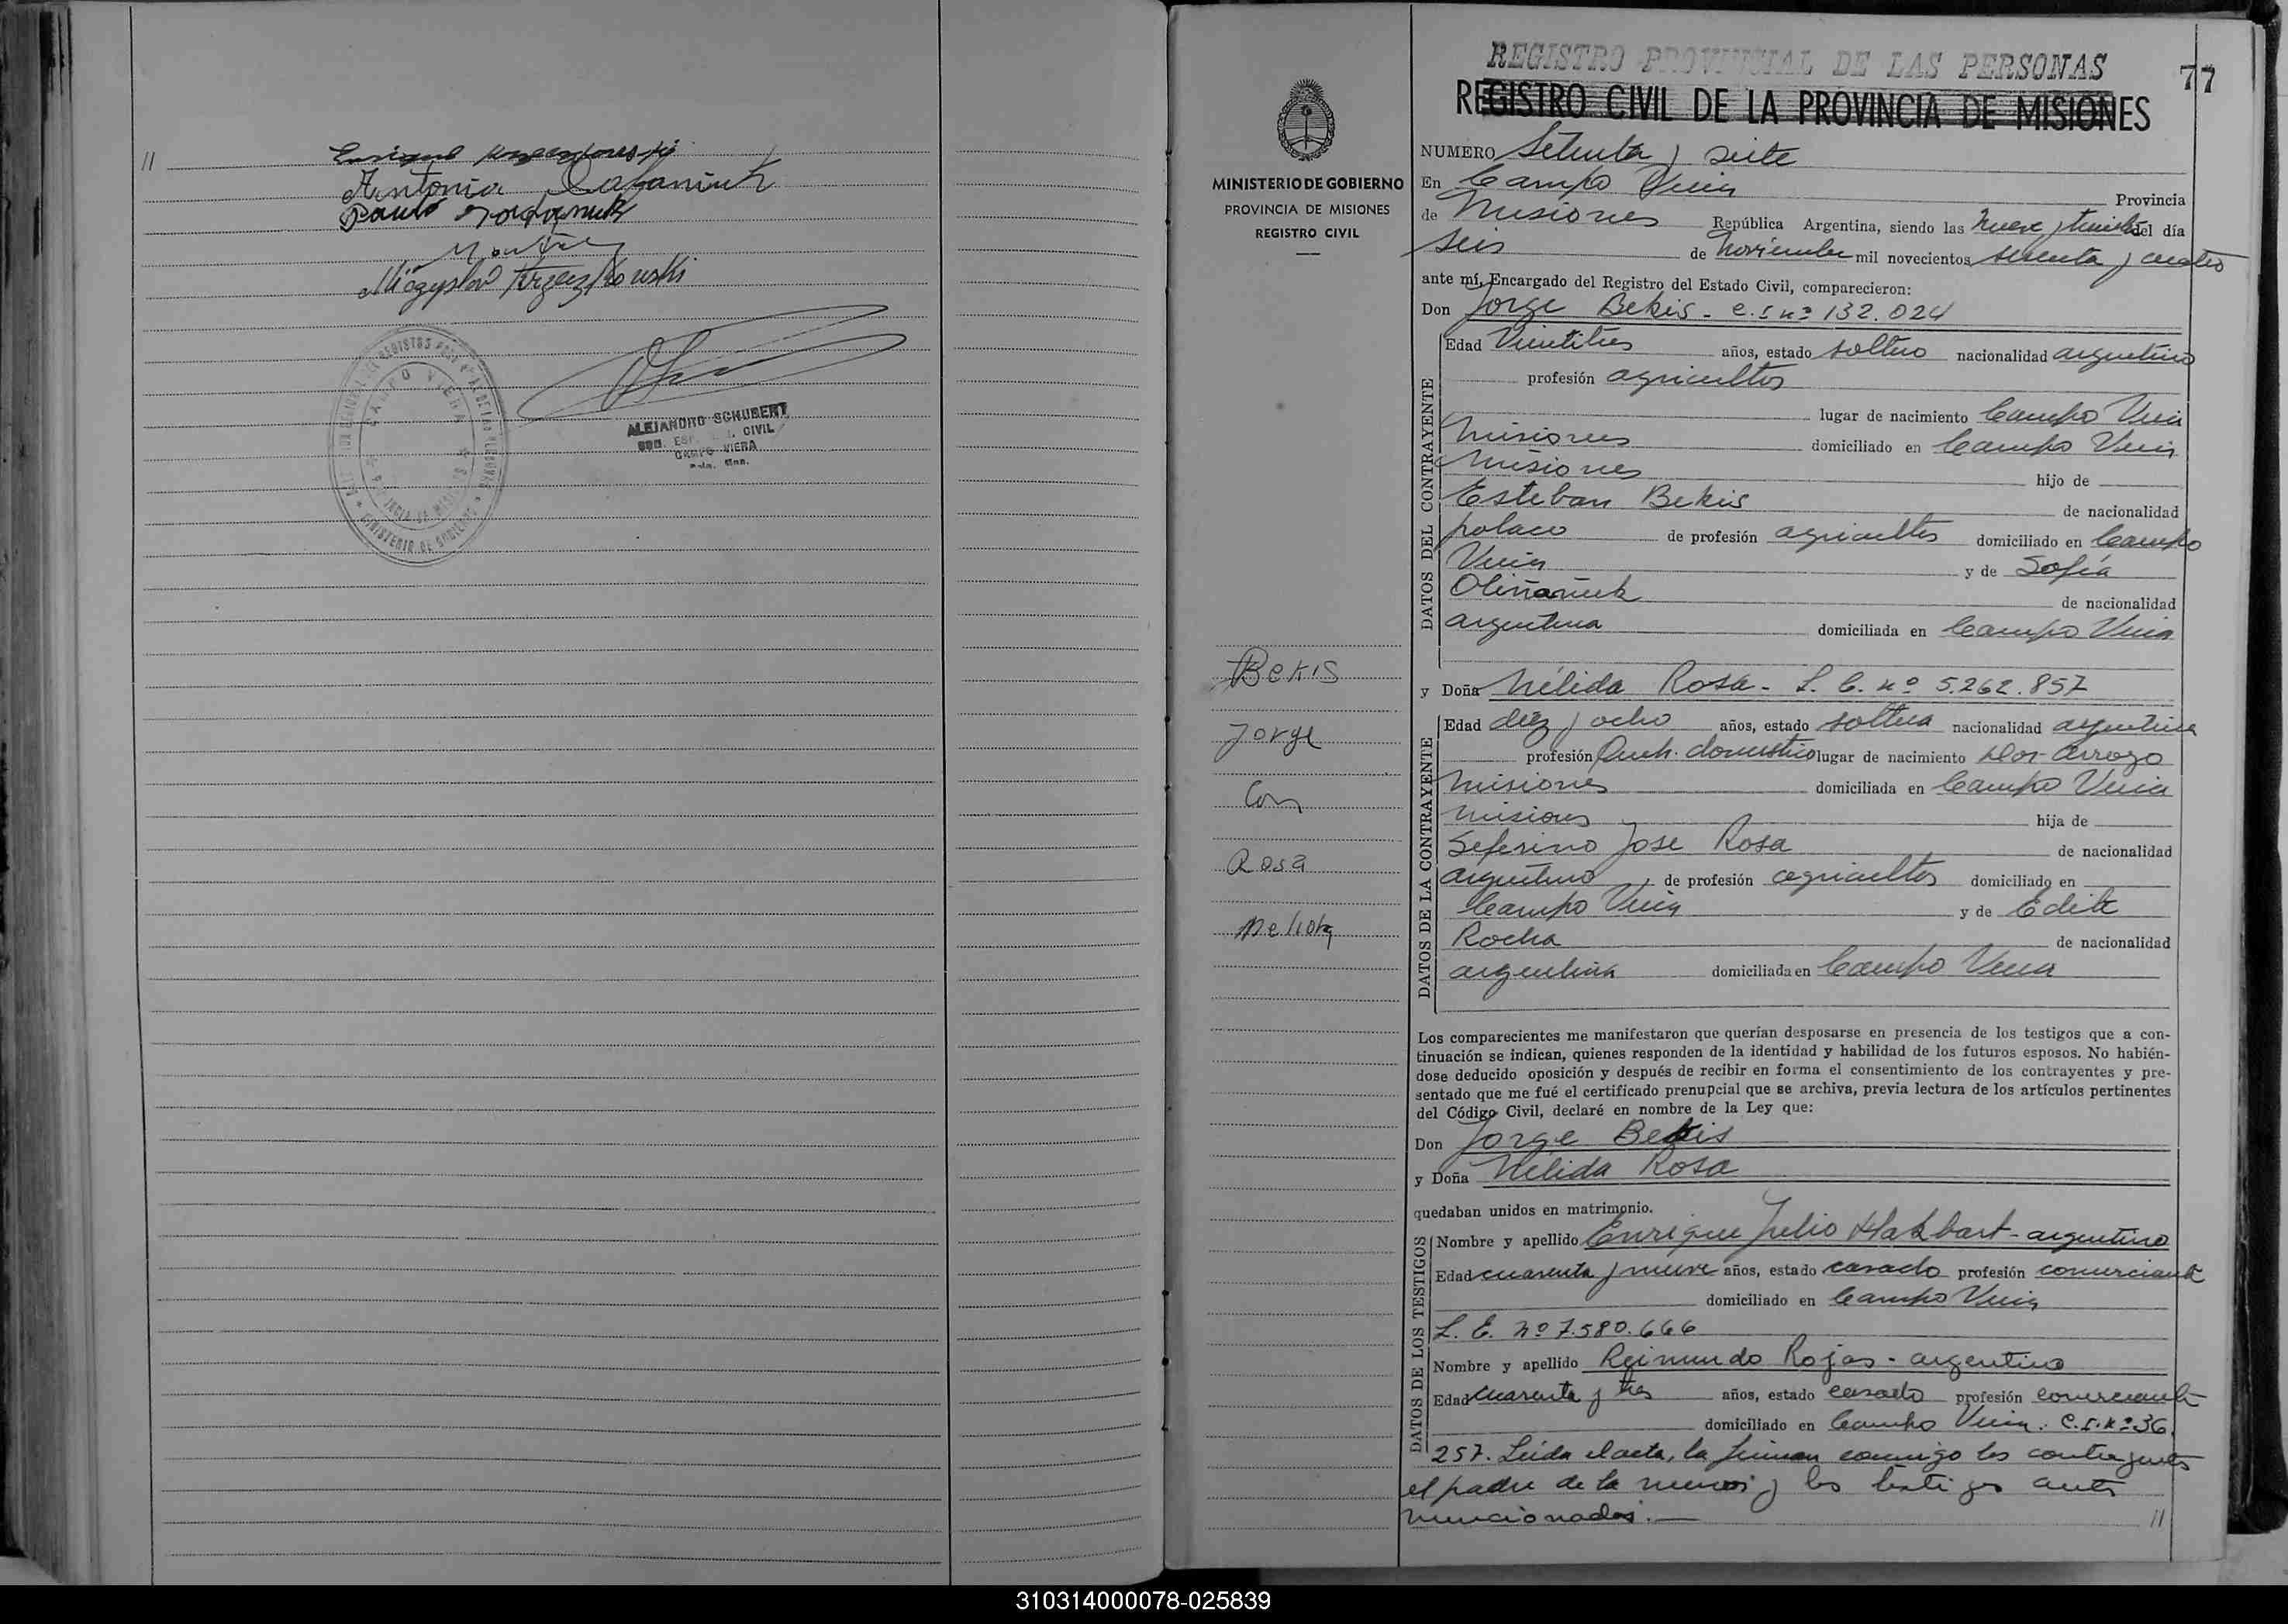 //
Enrique
Antonia
Paulo
Krzeszkowski
CAMPO VIERA
MINISTERIO DE GOBIERNO
ALEJANDRO SCHUBERT
CIVIL
CAMPO VIERA
REGISTRO PROVINCIAL DE LAS PERSONAS
77
REGISTRO CIVIL DE LA PROVINCIA DE MISIONES
MINISTERIO DE GOBIERNO
PROVINCIA DE MISIONES
REGISTRO CIVIL
Bekis
Jorge
Con
Rosa
Nelida
NUMERO Setenta y siete
En Campo Viera Provincia
de Misiones República Argentina, siendo las nueve y treinta del día
seis de Noviembre mil novecientos setenta y cuatro
ante mí, Encargado del Registro del Estado Civil, comparecieron:
Don Jorge Bekis - C.I. nº 132.024
DATOS DEL CONTRAYENTE
Edad Veintitres años, estado soltero nacionalidad argentino
profesión agricultor
lugar de nacimiento Campo Viera
Misiones domiciliado en Campo Viera
Misiones hijo de
Esteban Bekis de nacionalidad
polaco de profesión agricultor domiciliado en Campo
Viera y de Sofía
Oliñañuk de nacionalidad
argentina domiciliada en Campo Viera
y Doña Nélida Rosa - L. C. nº 5.262.857
DATOS DE LA CONTRAYENTE
Edad diez y ocho años, estado soltera nacionalidad argentina
profesión Queh. domestico lugar de nacimiento Dos Arroyo
Misiones domiciliada en Campo Viera
Misiones hija de
Seferino Jose Rosa de nacionalidad
argentino, de profesión agricultor domiciliado en
Campo Viera y de Edita
Rocha de nacionalidad
argentina domiciliada en Campo Viera
Los comparecientes me manifestaron que querían desposarse en presencia de los testigos que a con-
tinuación se indican, quienes responden de la identidad y habilidad de los futuros esposos. No habién-
dose deducido oposición y después de recibir en forma el consentimiento de los contrayentes y pre-
sentado que me fué el certificado prenupcial que se archiva, previa lectura de los artículos pertinentes
del Código Civil, declaré en nombre de la Ley que:
Don Jorge Bekis
y Doña Nélida Rosa
quedaban unidos en matrimonio.
DATOS DE LOS TESTIGOS
Nombre y apellido Enrique Julio Hakbart - argentino
Edad cuarenta y nueve años, estado casado profesión comerciante
domiciliado en Campo Viera
L. E. nº 7.580.666
Nombre y apellido Reimundo Rojas - argentino
Edad cuarenta y tres años, estado casado profesión comerciante
domiciliado en Campo Viera. C.I. nº 36.
257. Leida el acta, la firman conmigo los contrayentes
el padre de la menor y los testigos antes
mencionados.—
//
310314000078-025839